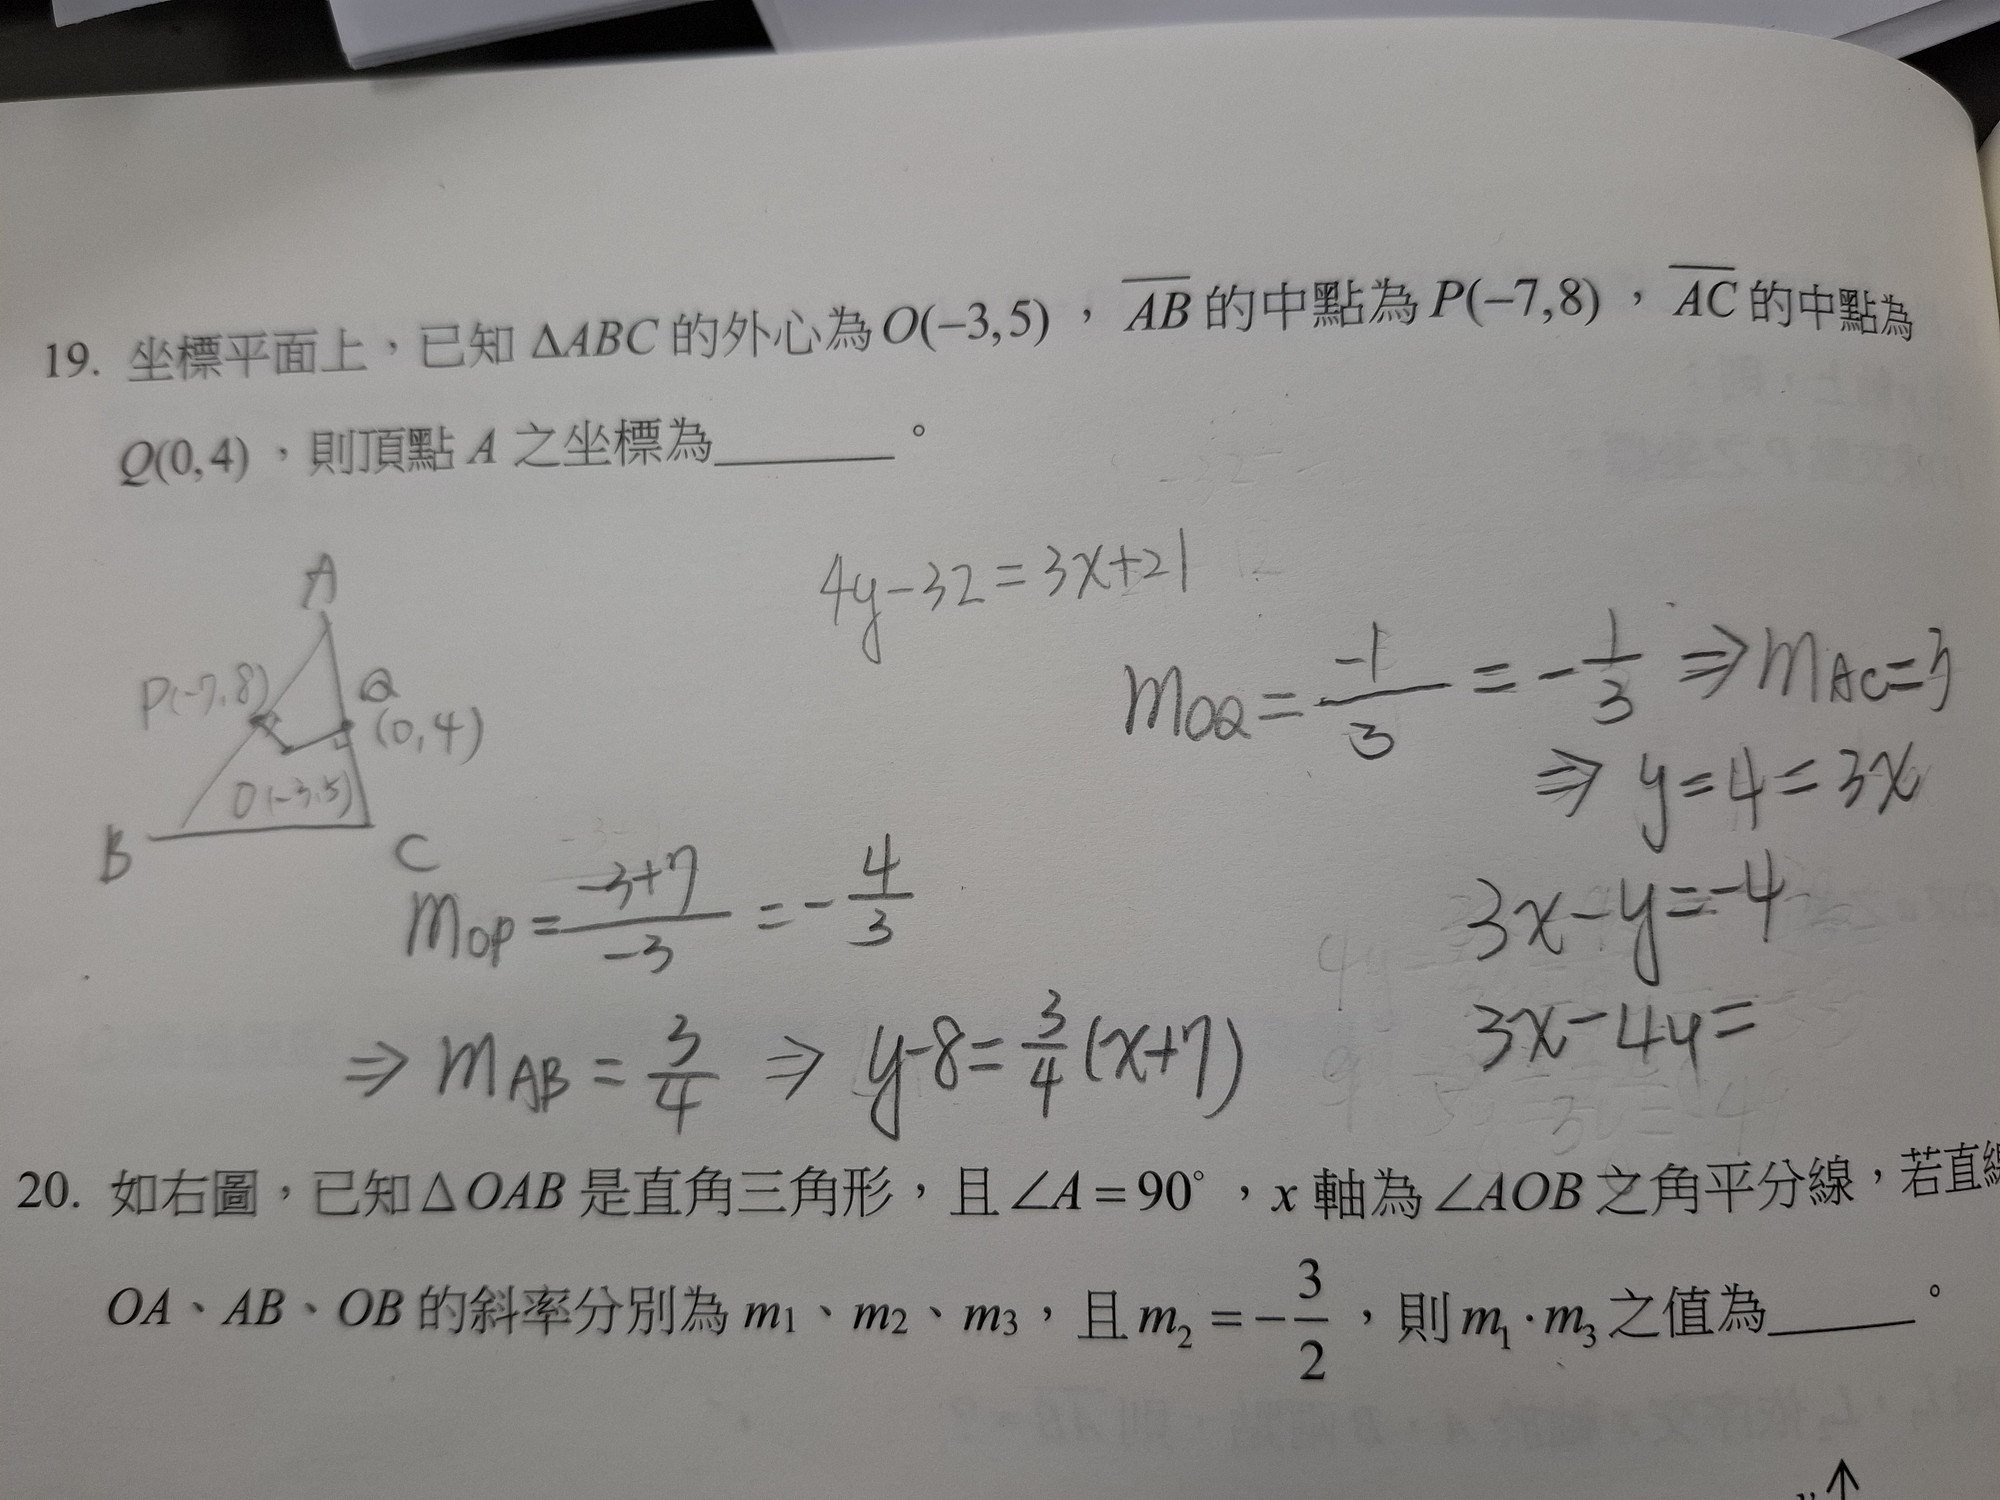 19. 坐標平面上，已知 ΔABC 的外心為 O(−3,5) ， AB 的中點為 P(−7,8) ， AC 的中點為
Q(0,4) ，則頂點 A 之坐標為______。
4y-32=3x+21
A
P(-7,8) Q
(0,4)
O(-3,5)
B C
m_OQ = -1/3 = -1/3 ⇒ m_AC=3
⇒ y=4=3x
m_OP = -3+7/-3 = -4/3
3x-y=-4
⇒ m_AB = 3/4 ⇒ y-8=3/4(x+7)
3x-4y=
20. 如右圖，已知 Δ OAB 是直角三角形，且 ∠A = 90° ， x 軸為 ∠AOB 之角平分線，若直線
OA、AB、OB 的斜率分別為 m1、m2、m3，且 m2 = −3/2 ，則 m1·m3 之值為______。